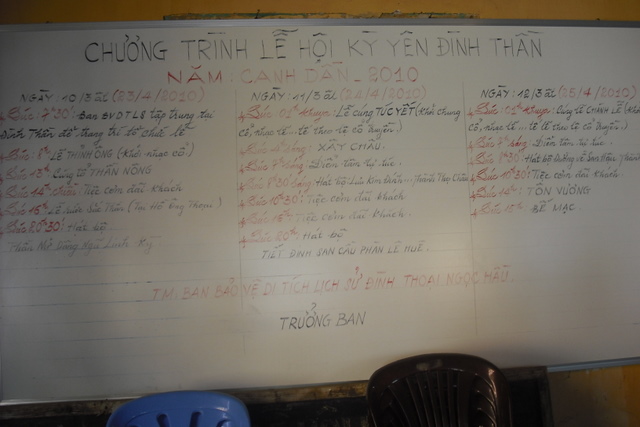 CHƯƠNG TRÌNH LỄ HỘI KỲ YÊN ĐÌNH THẦN
NĂM: CANH DẦN - 2010
NGÀY: 10/3 ÂL (23/4/2010)
Lúc 7h30: Ban BVDTLS tập trung tại
Đình Thần để trang trí tổ chức lễ
Lúc 8h LỄ THỈNH ÔNG (Khởi nhạc cổ)
Lúc 13h Cúng tế THẦN NÔNG
Lúc 14h Tiệc cơm đãi khách
Lúc 16h Lễ Sắc Thần
Lúc 20h30: Hát bộ
NGÀY: 11/3 ÂL (24/4/2010)
Lúc 01h khuya: Lễ cúng TÚC YẾT (Khởi chung
cổ, nhạc lễ - tế theo lệ cổ truyền)
XÂY CHẦU.
Lúc 7h sáng: Diễn tán tự túc.
Lúc 8h30 sáng: Hát bộ
Lúc 10h30: Tiệc cơm đãi khách
Lúc 16h: Tiệc cơm đãi khách.
Lúc 20h: Hát bộ
TIẾT ĐINH SAN CẦU PHÀN LÊ HUÊ.
NGÀY: 12/3 ÂL (25/4/2010)
Lúc 01h khuya: Cúng tế CHÁNH LỄ (Khởi
cổ, nhạc lễ - tế lễ theo lệ cổ truyền).
Lúc 7h sáng: Diễn tán tự túc.
Lúc 8h30: Hát bộ
Lúc 10h30: Tiệc cơm đãi khách.
Lúc 14h: TÔN VƯƠNG
Lúc 15h: BẾ MẠC
T.M: BAN BẢO VỆ DI TÍCH LỊCH SỬ ĐÌNH THOẠI NGỌC HẦU.
TRƯỞNG BAN